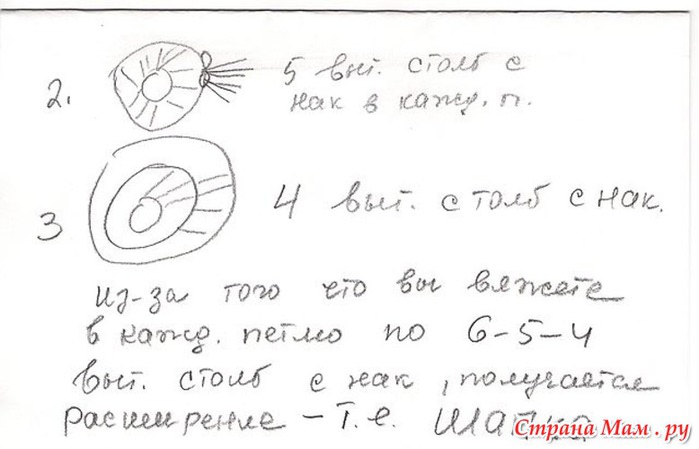 2. 5 выт. столб с
нак в кажд. п.
3 4 выт. столб с нак.
из-за того что вы вяжете
в кажд. петлю по 6-5-4
выт. столб с нак, получается
расширение - т.е. шапка
Страна Мам.ру